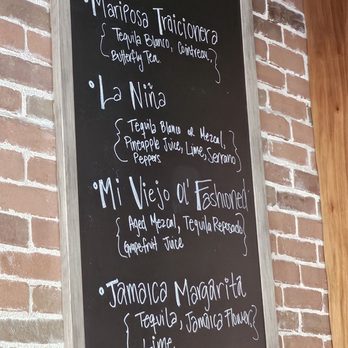 •Mariposa Traicionera
{Tequila Blanco, Cointreau,
Butterfly Tea}
•La Niña
{Tequila Blanco al Mezcal,
Pineapple Juice, Lime, Serrano
Peppers}
•Mi Viejo Ol' Fashioned
{Aged Mezcal, Tequila Reposado,
Grapefruit Juice}
•Jamaica Margarita
{Tequila, Jamaica Flower,
Lime